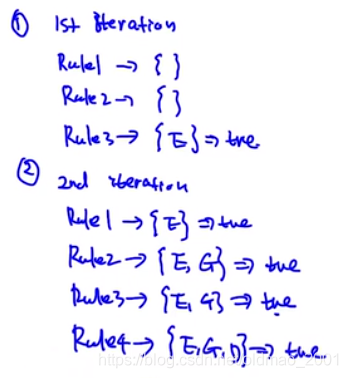 ① 1st iteration
Rule1 → { }
Rule2 → { }
Rule3 → {E} ⇒ true
② 2nd iteration
Rule1 → {E} ⇒ true
Rule2 → {E, G} ⇒ true
Rule3 → {E, G} ⇒ true
Rule4 → {E, G, D} ⇒ true